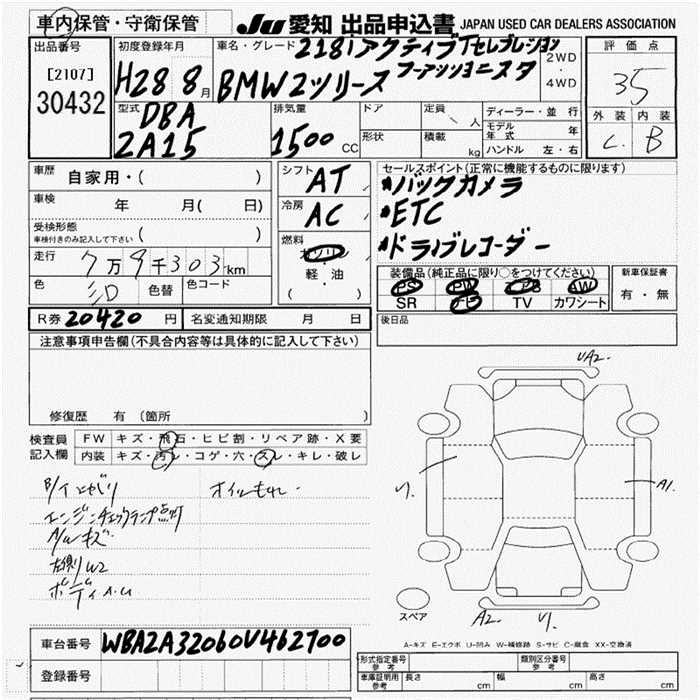 車内保管・守衛保管
JU 愛知 出品申込書 JAPAN USED CAR DEALERS ASSOCIATION
出品番号
[2107]
30432
初度登録年月
H28 8月
車名・グレード
218iアクティブTセレブレション
BMW2ツリース ファッションニスタ
2WD
・
4WD
評価点
3.5
外装 内装
C B
型式
DBA
2A15
排気量
1500 CC
ドア
定員 人
形状
積載 kg
ディーラー・並行
モデル年式 年
ハンドル 左・右
車歴 自家用・( )
車検 年 月( 日)
受検形態
車検付きのみ記入して下さい ( )
走行 7万9千303km
色 シロ 色替 色コード
シフト AT
冷房 AC
燃料
ガソリン
・
軽・油
( )
セールスポイント(正常に機能するものに限ります)
*バックカメラ
*ETC
*ドライブレコーダー
装備品(純正品に限り○をつけてください)
PS PW エアB AW
SR ナビ TV カワシート
新車保証書
有・無
R券 20420 円 名変通知期限 月 日
後日品
注意事項申告欄(不具合内容等は具体的に記入して下さい)
修復歴 有(箇所 )
検査員記入欄
FW キズ・飛石・ヒビ割・リペア跡・X要
内装 キズ・汚レ・コゲ・穴・スレ・キレ・破レ
オイルもれ
エンジンチェックランプ点灯
A/Wキズ
左側W2
ボディA.U
UA2.
U.
A1.
A2.
U1.
スペア
A-キズ E-エクボ U-凹み W-補修跡 S-サビ C-腐食 XX-交換済
車台番号 WBA2A32060V462700
登録番号
形式指定番号 参考
類別区分番号 参考
車庫証明用 参考 長さ cm 幅 cm 高さ cm